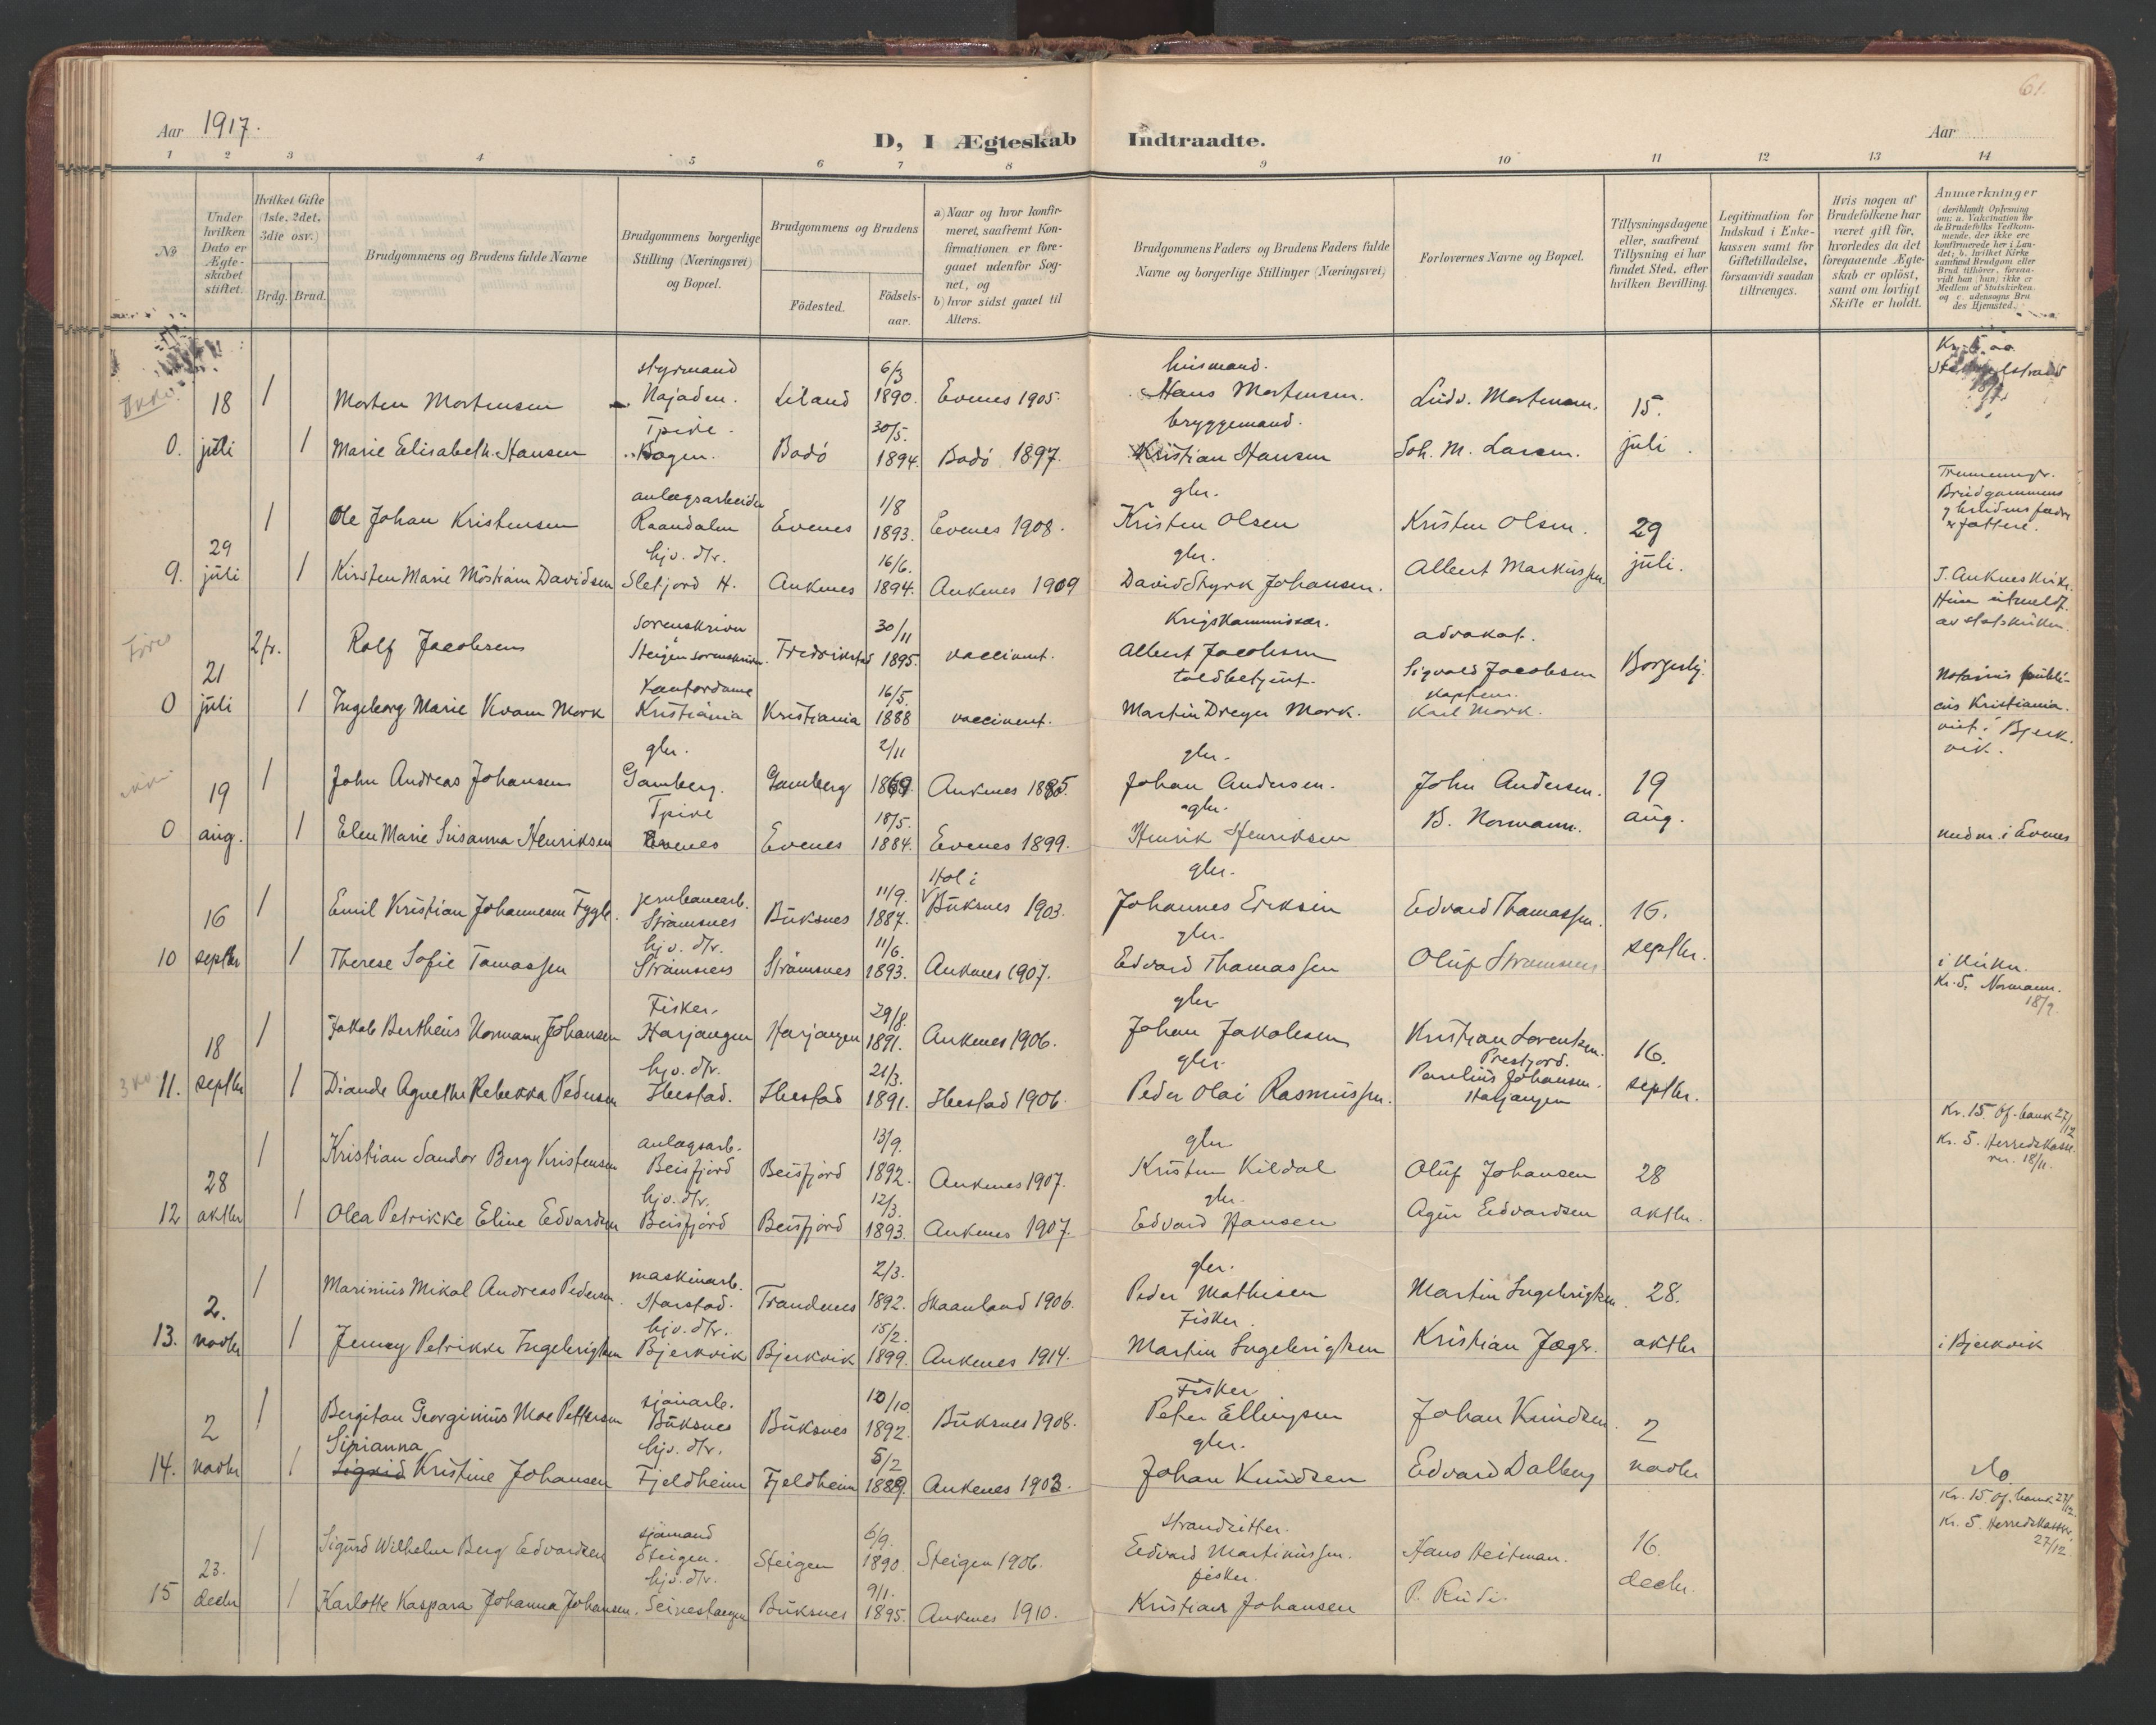 61.
Aar 1917.
D, I Ægteskab Indtraadte.
Aar
1 2 3 4 5 6 7 8 9 10 11 12 13 14
No
Under hvilken Dato er Ægteskabet stiftet.
Hvilket Gifte (1ste, 2det, 3die osv.)
Brdg. Brud.
Brudgommens og Brudens fulde Navne
Brudgommens borgerlige Stilling (Næringsvei) og Bopæl.
Brudgommens og Brudens
Födested.
Födselsaar.
a) Naar og hvor konfirmeret, saafremt Konfirmationen er foregaaet udenfor Sognet, og
b) hvor sidst gaaet til Alters.
Brudgommens Faders og Brudens Faders fulde Navne og borgerlige Stillinger (Næringsvei)
Forlovernes Navne og Bopæl.
Tillysningsdagene eller, saafremt Tillysning ei har fundet Sted, efter hvilken Bevilling.
Legitimation for Indskud i Enkekassen samt for Giftetilladelse, forsaavidt saadan tiltrænges.
Hvis nogen af Brudefolkene har været gift för, hvorledes da det foregaaende Ægteskab er oplöst, samt om lovligt Skifte er holdt.
Anmerkninger
(deriblandt Oplysning om: a. Vakcination for de Brudefolks Vedkommende, der ikke ere konfirmerede her i Landet; b. hvilket Kirkesamfund Brudgom eller Brud tilhörer, forsaavidt han (hun) ikke er Medlem af Statskirken og c. udensogns Brudes Hjemsted.)
styrmand 6/3 husmand.
18 1 Morten Mortensen Najaden. Liland 1890. Evenes 1905. Hans Mortensen. Ludv. Mortensen. 15.
Tpike. 30/5. bryggemand.
0. juli 1 Marie Elisabeth Hansen Bogen. Bodö 1894. Bodö 1897. Kristian Hansen Joh. M. Larsen. juli.
anlægsarbeider 1/8 gbr.
1 Ole Johan Kristensen Raandalen Evenes 1893. Evenes 1908. Kristen Olsen Kristen Olsen. 29
Brudgommens
29 hjv. dtr. 16/6. gbr.
9. juli 1 Kirsten Marie Möstrøm Davidsen Sletjord H. Ankenes 1894. Ankenes 1909 David Styrk Johansen. Albert Markussen juli.
I. Ankenes kirke.
Hun utmeldt
av statskirken.
Sorenskriver 30/11 Krigskommissær. advokat.
2fr. Rolf Jacobsen Steigen sorenskriveri. Fredrikstad 1895. vaccinert. Albert Jacobsen Sigvald Jacobsen Borgerlig.
21 Kontordame 16/5. toldbetjent. kaptein.
0 juli 1 Ingeborg Marie Kvam Mork Kristiania Kristiania 1888 vaccinert. Martin Dreyer Mork. Karl Mork.
Notarius publicus Kristiania.
viet i Bjerkvik.
gbr. 2/11 gbr.
19 1 John Andreas Johansen Gamberg. Gamberg 1869 Ankenes 1885. Johan Andersen. John Andersen. 19
Tpike 18/5. gbr.
0 aug. 1 Elen Marie Susanna Henriksen Evenes Evenes 1884. Evenes 1899. Henrik Henriksen B. Normann. aug.
i Evenes
jernbanearb. 11/9. Hol i gbr.
16 1 Emil Kristian Johannesen Fygle. Strømsnes Buksnes 1887. Buksnes 1903. Johannes Eriksen Edvard Thomassen. 16.
hjv. dtr. 11/6. gbr.
10 septbr 1 Therese Sofie Tomassen Strømsnes Strømsnes 1893. Ankenes 1907. Edvard Thomassen Oluf Strømsnes septbr.
i kirken.
Kr. 5. Normann. 18/9.
Fisker. 29/8. gbr.
18 1 Jakob Bertheus Normann Johansen Harjangen Harjangen 1891. Ankenes 1906. Johan Jakobsen Kristian Lorentsen. Prestjord. 16.
hjv. dtr. 21/3. gbr.
11. septbr 1 Diande Agnethe Rebekka Pedersen Ibestad. Ibestad 1891. Ibestad 1906. Peder Olai Rasmussen. Paulius Johansen. Harjangen septbr.
Kr. 15. Of. bank 27/12
Kr. 5. Herredskasserer. 18/11.
anlægsarb. 13/9. gbr
28 1 Kristian Sandor Berg Kristensen Beisfjord Beisfjord 1892. Ankenes 1907. Kristen Kildal Oluf Johansen 28
hjv. dtr. 12/3. gbr.
12 oktbr 1 Olea Petrikke Eline Edvardsen Beisfjord Beisfjord 1893. Ankenes 1907. Edvard Hansen Agen Edvardsen oktbr.
maskinarb. 2/3. gbr.
2. 1 Marinius Mikal Andreas Pedersen. Harstad. Trondenes 1892. Skaanland 1906. Peder Mathisen Martin Ingebrigtsen. 28.
hjv. dtr. 15/2. Fisker.
13. novbr 1 Jenny Petrikke Ingebrigtsen Bjerkvik Bjerkvik 1899. Ankenes 1914. Martin Ingebrigtsen Kristian Jæger. oktbr
i Bjerkvik
sjöuarb. 10/10 Fisker
2 1 Bergitan Georginius Moe Pettersen Buksnes Buksnes 1892. Buksnes 1908. Peter Ellingsen Johan Knudsen. 2
Sirianna hjv. dtr. 5/2 gbr.
14. novbr 1 Sigrid Kristine Johansen Fjeldheim Fjeldheim 1889. Ankenes 1903. Johan Knudsen Edvard Dalberg novbr
do.
Kr. 15. Of. bank 27/12.
Kr. 5. Herredskasser. 27/12
sjömand 6/9. strandsitter.
23. 1 Sigurd Wilhelm Berg Edvardsen Steigen. Steigen 1890. Steigen 1906. Edvard Martinussen. Hans Heitman. 16.
hjv. dtr. 9/1. fisker.
15 decbr 1 Karlotte Kaspara Johanna Johansen. Buksnes 1895. Ankenes 1910. Kristian Johansen P. Rudi. decbr.